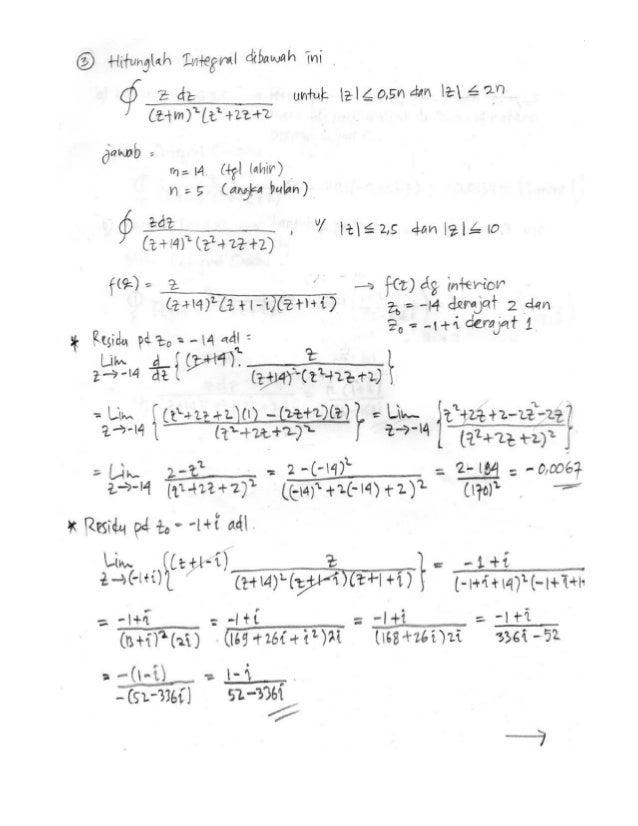 ③ Hitunglah Integral dibawah ini .
∮ z dz / (z+m)² (z²+2z+2 untuk |z| ≤ 0,5n dan |z| ≤ 2n
jawab =
m = 14 (tgl lahir)
n = 5 (angka bulan)
∮ zdz / (z+14)² (z²+2z+2) , u/ |z| ≤ 2,5 dan |z| ≤ 10
f(z) = z / (z+14)² (z+1-i)(z+1+i) → f(z) dg interior
z₀ = -14 derajat 2 dan
z₀ = -1+i derajat 1
* Residu pd z₀ = -14 adl =
Lim z→-14 d/dz { (z+14)² . z / (z+14)² (z²+2z+2) }
= Lim z→-14 { (z²+2z+2)(1) - (2z+2)(z) / (z²+2z+2)² } = Lim z→-14 { z²+2z+2-2z²-2z / (z²+2z+2)² }
= Lim z→-14 2-z² / (z²+2z+2)² = 2-(-14)² / ((-14)²+2(-14)+2)² = 2-194 / (170)² = -0,0067
* Residu pd z₀ = -1+i adl.
Lim z→(-1+i) { (z+1-i) z / (z+14)² (z+1-i)(z+1+i) } = -1+i / (-1+i+14)² (-1+i+1+
= -1+i / (13+i)² (2i) = -1+i / (169+26i+i²)2i = -1+i / (168+26i)2i = -1+i / 336i-52
= -(1-i) / -(52-336i) = 1-i / 52-336i
→